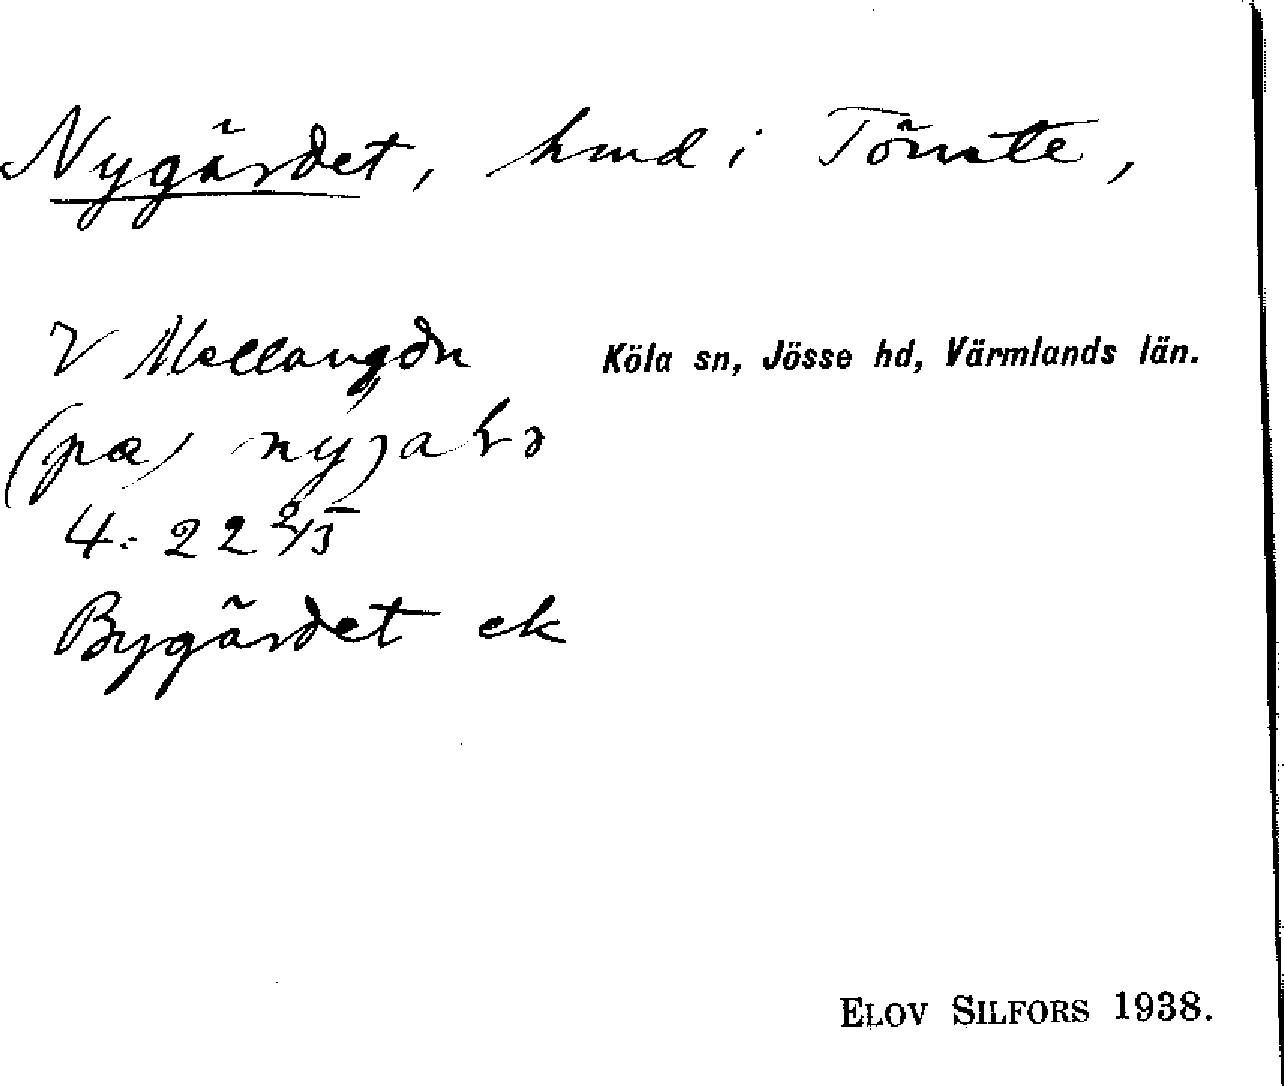 Nygärdet, hmd i Tömte,
V Mellangdn Köla sn, Jösse hd, Värmlands län.
(pa)
4:22 2/5
Bygärdet ek
ELOV SILFORS 1938.